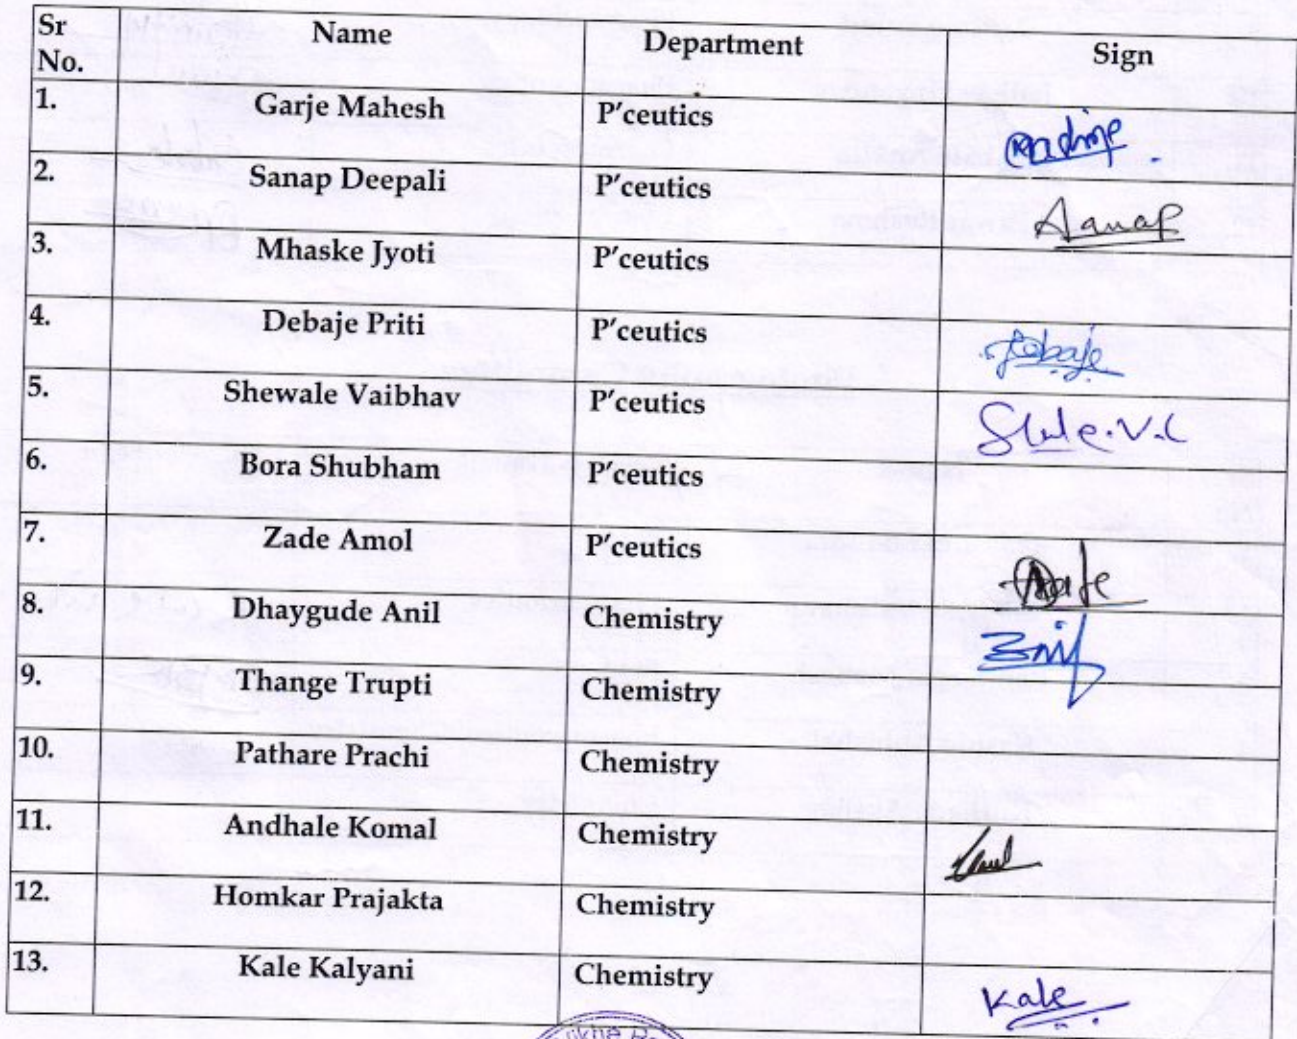 Sr No. Name Department Sign
1. Garje Mahesh P'ceutics
2. Sanap Deepali P'ceutics Sanap
3. Mhaske Jyoti P'ceutics
4. Debaje Priti P'ceutics Debaje
5. Shewale Vaibhav P'ceutics
6. Bora Shubham P'ceutics
7. Zade Amol P'ceutics
8. Dhaygude Anil Chemistry
9. Thange Trupti Chemistry
10. Pathare Prachi Chemistry
11. Andhale Komal Chemistry
12. Homkar Prajakta Chemistry
13. Kale Kalyani Chemistry Kale